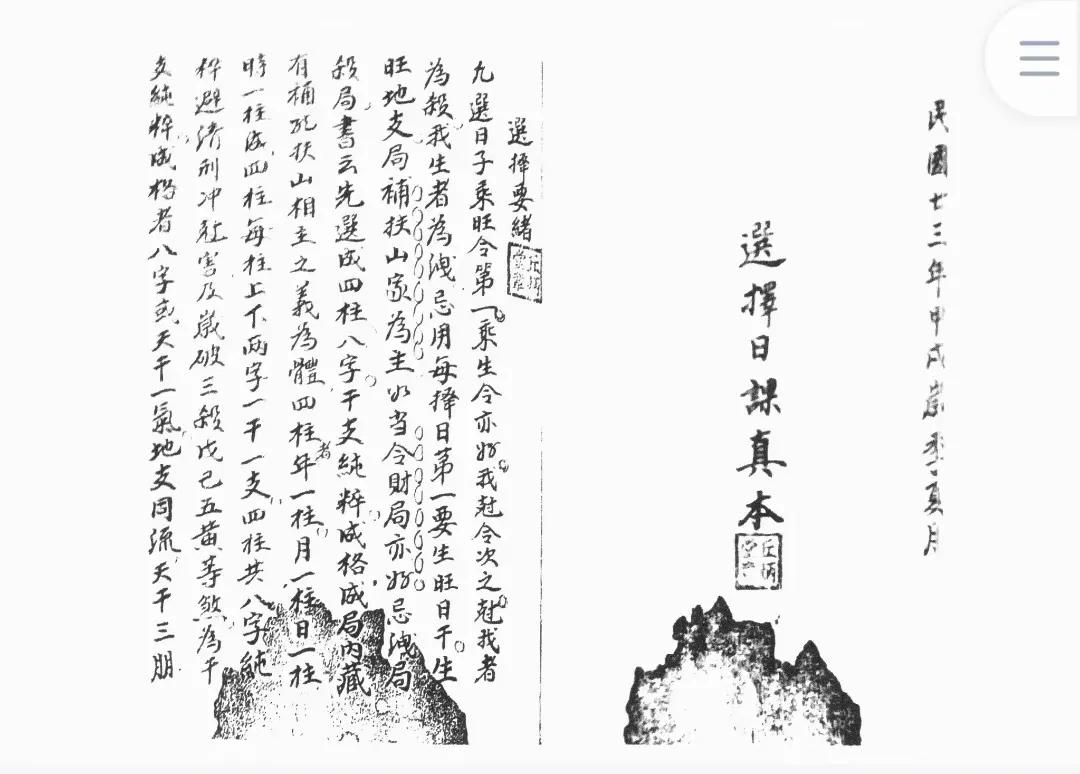 民國廿三年甲戌歲月
選擇日課真本
選擇要緒
九選日子乘旺令第一乘生令亦好我尅令次之尅我者
為殺我生者為洩忌用每擇日第一要生旺日干生
旺地支局補扶山家為主如当令財局亦好忌洩局
殺局書云先選成四柱八字干支純粹成格成局內藏
有補龙扶山相主之義為體四柱者年一柱月一柱日一柱
時一柱成四柱每柱上下两字一干一支四柱共八字純
粹避諸刑冲尅害及歲破三殺戊己五黃等煞為干
支純粹成格者八字或天干一氣地支同流天干三朋